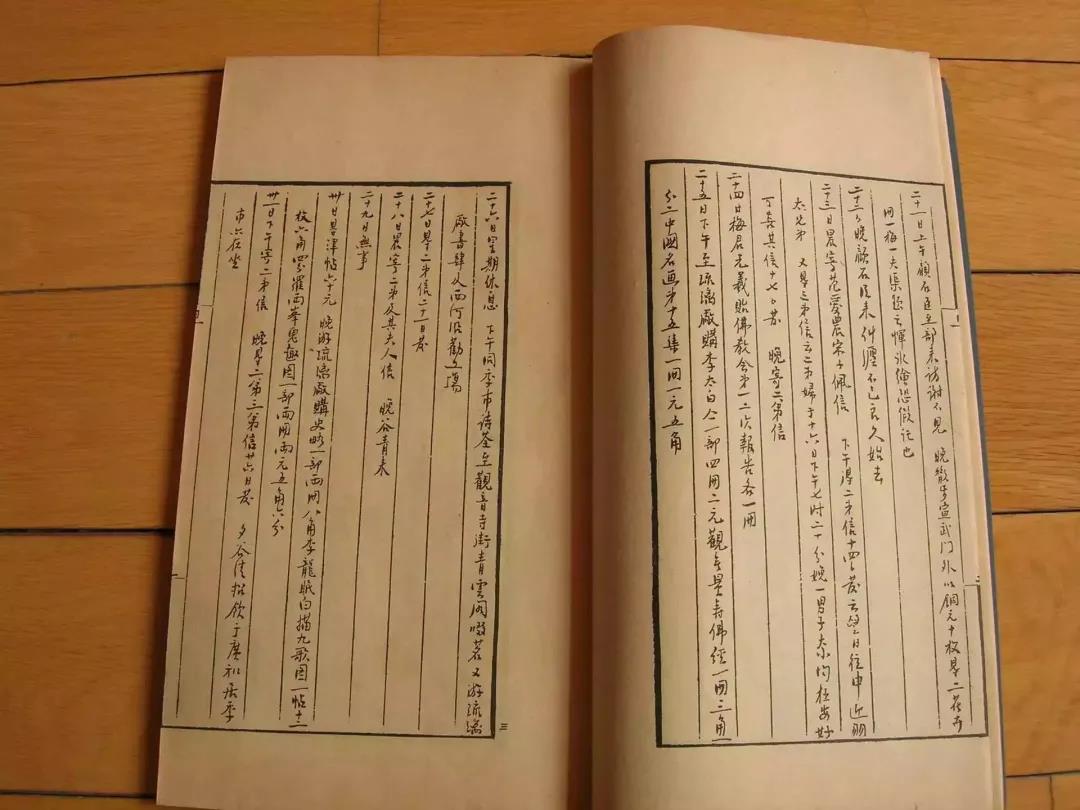 二十一日上午顧石臣至部来訪謝不見　晚散步宣武门外以銅元十枚易二花卉
冊一梅一夫渠題云惲冰繪恐假託也
二十二日晚顧石臣来糾纏不已良久始去
二十三日晨寄范愛農宋子佩信　下午得二弟信十四日發云望日往申迎羽
太兄弟　又得三弟信云二弟婦于十六日下午七时二十分娩一男子大小均極安好
可喜其信十七日發　晚寄二弟信
二十四日梅君光羲貽佛教会第一二次報告各一冊
二十五日下午至琉璃廠購李太白仝一部四冊二元觀無量寿佛經一冊三角一
分二中國名画第十五集一冊一元五角
二十六日星期休息　下午同季市詩荃至觀音寺街青雲阁啜茗又游琉璃
廠書肆及西河沿勸工場
二十七日得二弟信二十一日發
二十八日晨寄二弟及其夫人信　晚谷青来
二十九日無事
卅日得津帖六十元　晚游琉璃廠購史略一部兩冊八角李龍眠白描九歌图一帖十二
枚六角四分羅兩峯鬼趣图一部兩冊兩元五角六分
卅一日下午寄二弟信　晚得二弟三弟信廿六日發　夕谷清招飲于廣和居季
市亦在坐